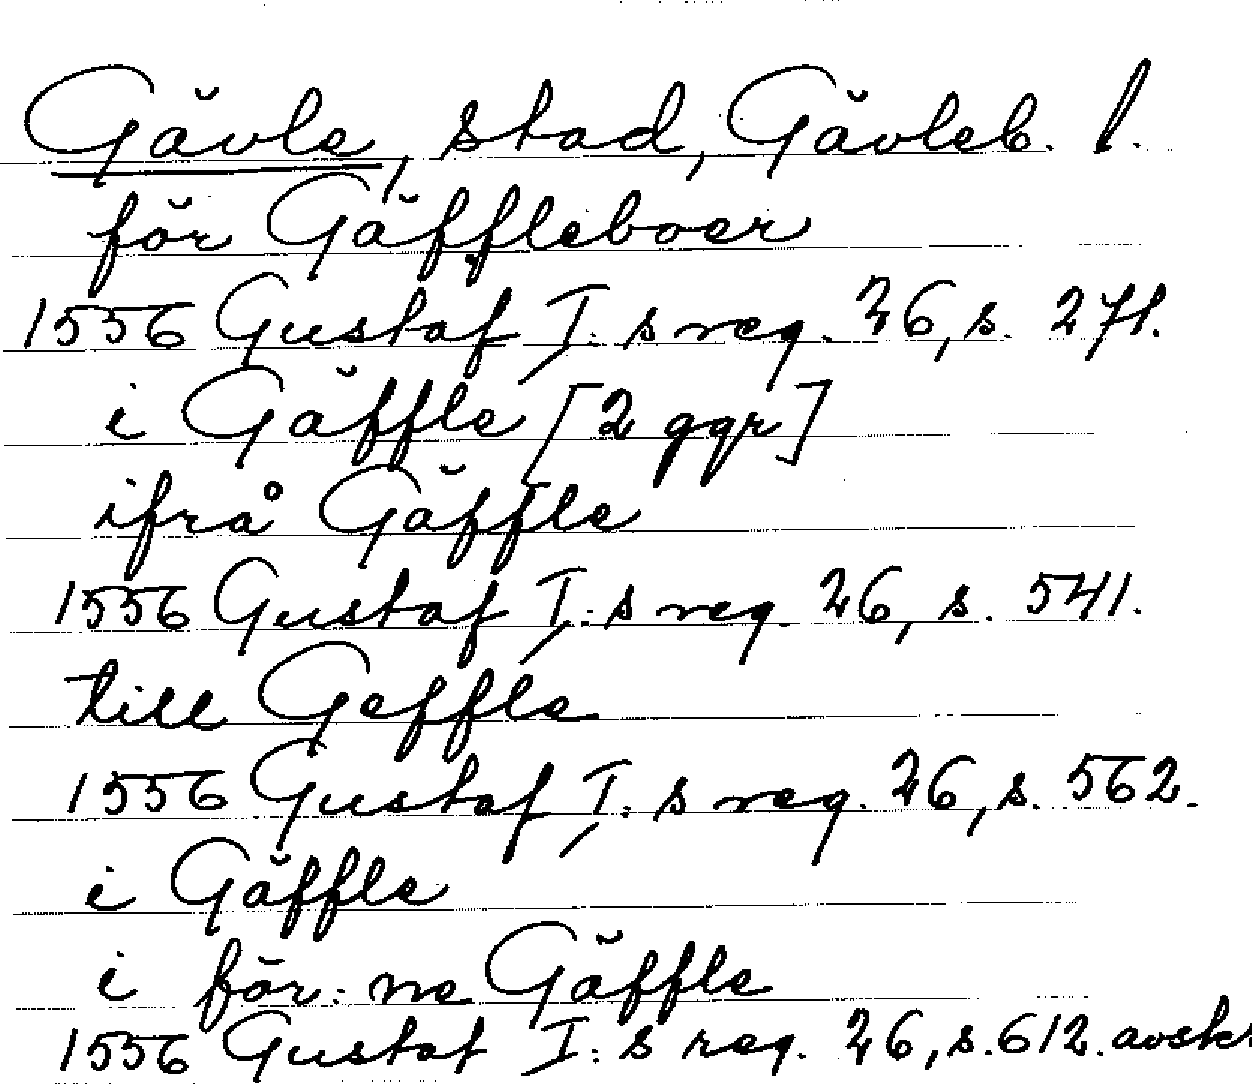 Gävle, stad, Gävleb. l.
för Gäffleboer
1556 Gustaf I:s reg. 26, s. 271.
i Gäffle [2 ggr]
ifrå Gäffle
1556 Gustaf I:s reg. 26, s. 541.
till Geffle
1556 Gustaf I:s reg. 26, s. 562.
i Gäffle
i för:ne Gäffle
1556 Gustaf I:s reg. 26, s. 612. avskr